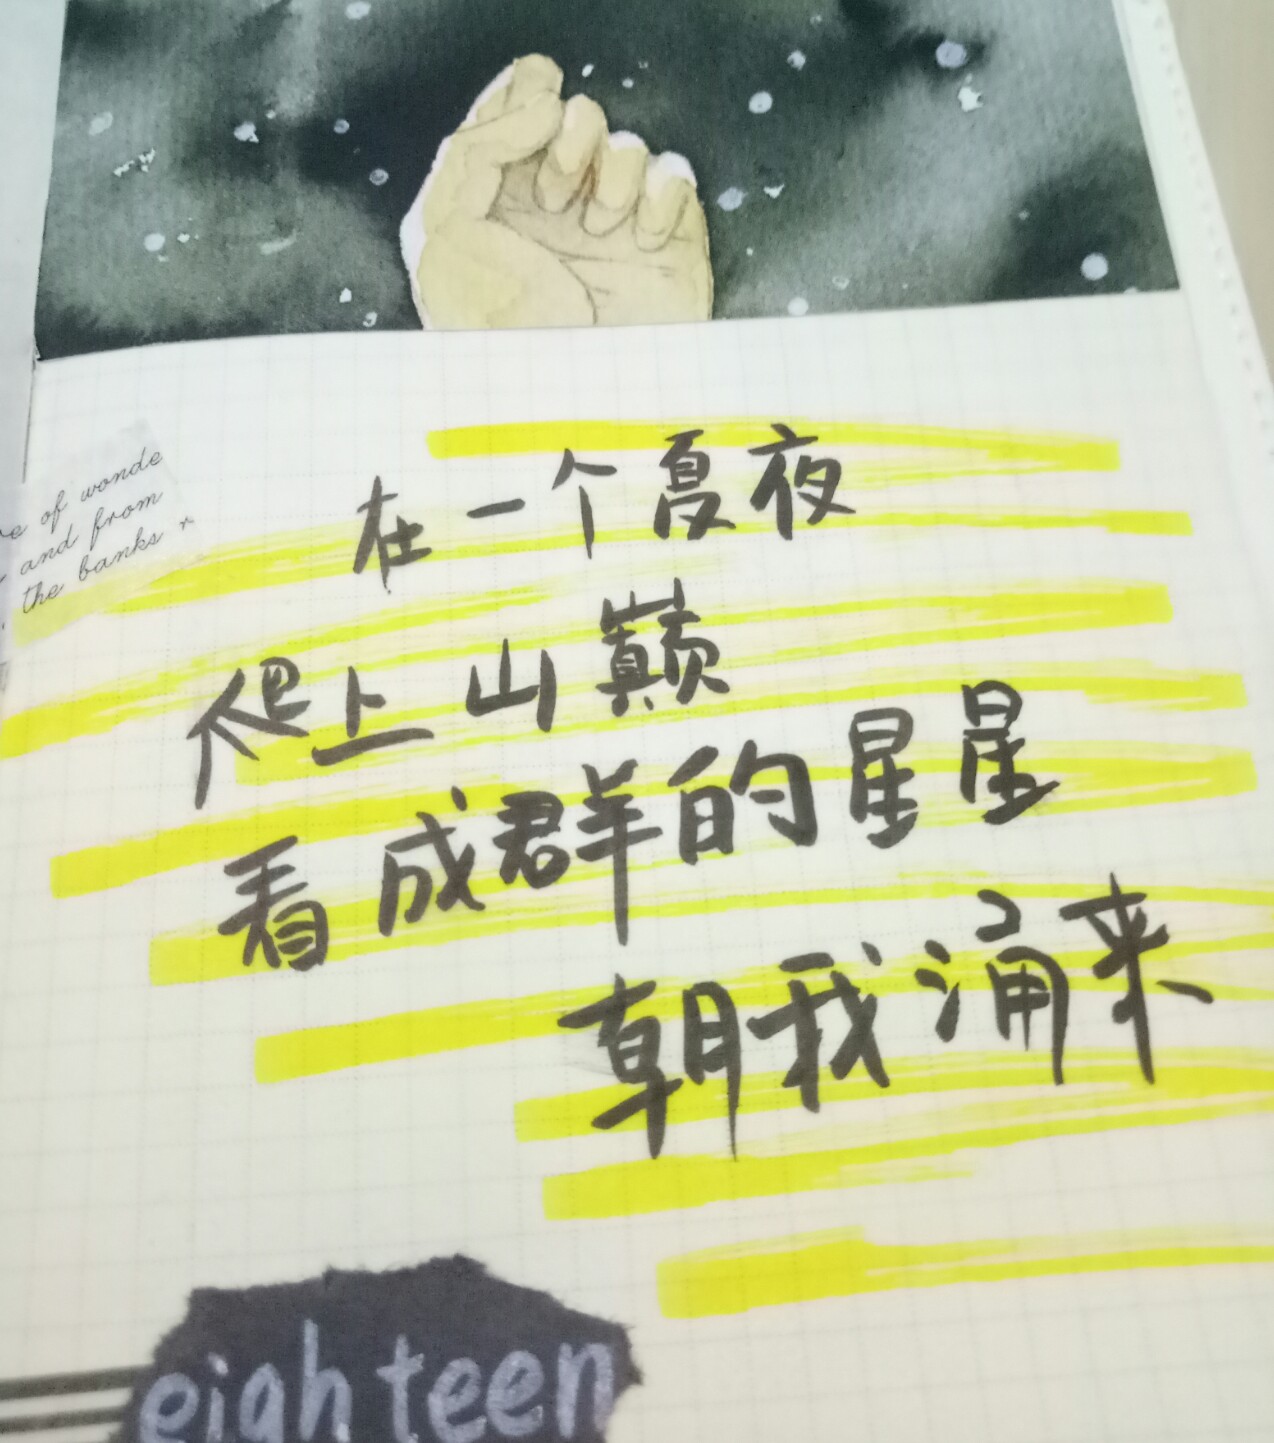 of wonde
and from
the banks
在一个夏夜
爬上山巅
看成群的星星
朝我涌来
eighteen